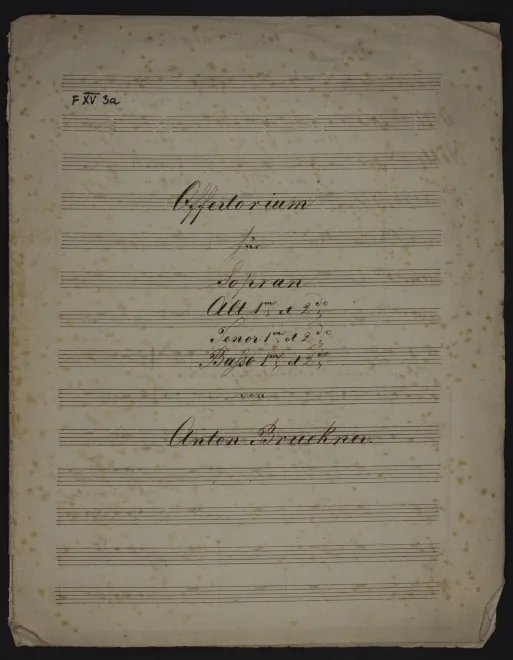 F XV 3a
Offertorium
für
Sopran
Alt 1mo et 2do
Tenor 1mo et 2do
Baßo 1mo et 2do
von
Anton Bruckner.